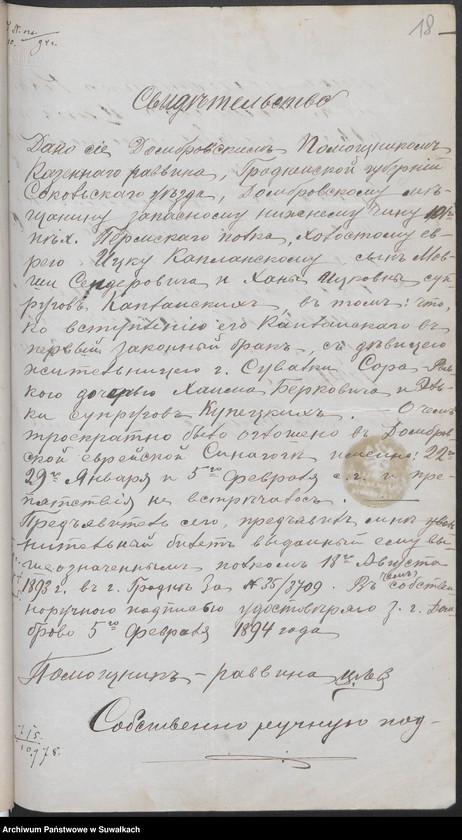 18
Свидѣтельство
Дано сіе Домбровскимъ Помощникомъ
Казеннаго раввина, Гродненской губерніи
Сокольскаго уѣзда, Домбровскому мѣ-
щанину запасному нижнему чину
пѣх. Пермскаго полка, холостому ев-
рею Ицку Капланскому сынъ Мов-
ши Сендеровича и Ханы Ицковны суп-
руговъ Капланскихъ въ томъ: что,
ко вступленію его Капланскаго въ
первый законный бракъ, съ дѣвицею
жительницею г. Сувалки Сора
дочерью Хаима Берковича и
супруговъ Купецкихъ. — О чемъ
троекратно было оглашено въ Домбров-
ской еврейской Синагоги именно: 22го
29го Января и 5го Февраля с.г. и пре-
пятствія не встрѣчалось.
Предъявитель сего, предъявилъ мнѣ уволь-
нительный билетъ выданный ему вы-
шеозначеннымъ полкомъ 18го Августа
1893 г. въ г. Гроднѣ за № 35/3709. Въ чемъ собствен-
норучного подписью удостовѣряю з. г. Дом-
брово 5го Февраля 1894 года
Помощникъ – раввина
Собственно ручную под-
Archiwum Państwowe w Suwałkach